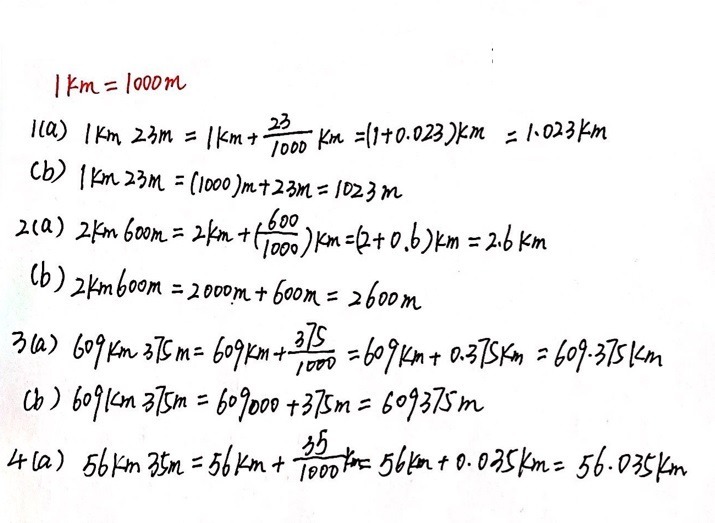 1km = 1000m
1(a) 1km 23m = 1km + 23/1000 km = (1+0.023)km = 1.023km
(b) 1km 23m = (1000)m + 23m = 1023m
2(a) 2km 600m = 2km + (600/1000)km = (2+0.6)km = 2.6km
(b) 2km 600m = 2000m + 600m = 2600m
3(a) 609km 375m = 609km + 375/1000 = 609km + 0.375km = 609.375km
(b) 609km 375m = 609000 + 375m = 609375m
4(a) 56km 35m = 56km + 35/1000 km = 56km + 0.035km = 56.035km